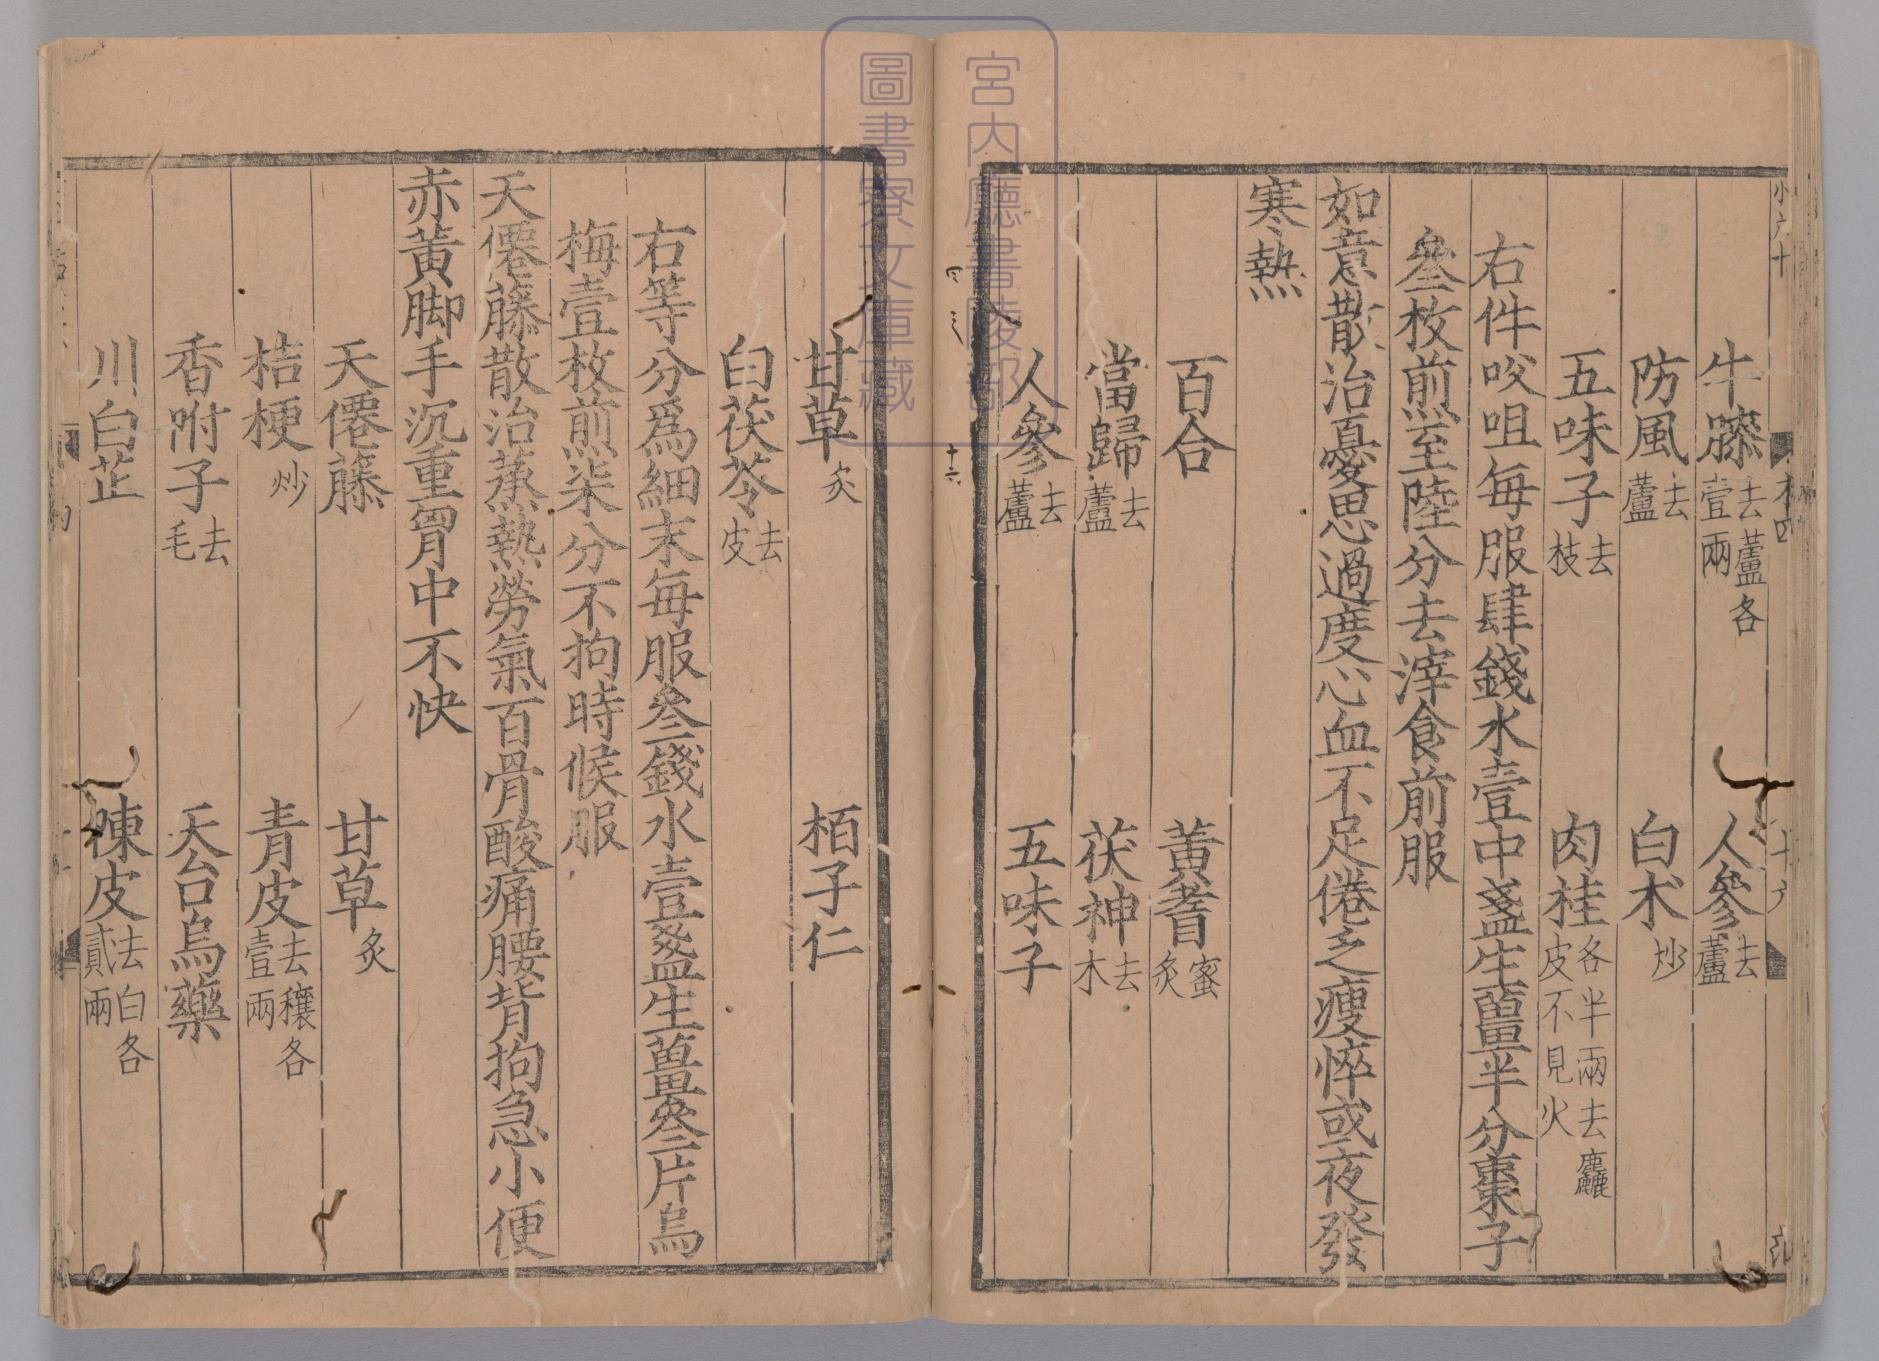 牛膝去蘆各壹兩 人參去蘆
防風去蘆 白朮炒
五味子去枝 肉桂各半兩去麤皮不見火
右件㕮咀每服肆錢水壹中盞生薑半分棗子
叄枚煎至陸分去滓食前服
如意散治憂思過度心血不足倦乏瘦悴或夜發
寒熱
百合 黃耆蜜炙
當歸去蘆 茯神去木
人參去蘆 五味子
甘草炙 栢子仁
白茯苓去皮
右等分爲細末每服叄錢水壹盞生薑叄片烏
梅壹枚煎柒分不拘時候服
天僊藤散治蒸熱勞氣百骨酸痛腰背拘急小便
赤黃脚手沉重胷中不快
天僊藤 甘草炙
桔梗炒 青皮去穰各壹兩
香附子去毛 天台烏藥
川白芷 陳皮去白各貳兩
宮内廳書陵部
圖書寮文庫藏